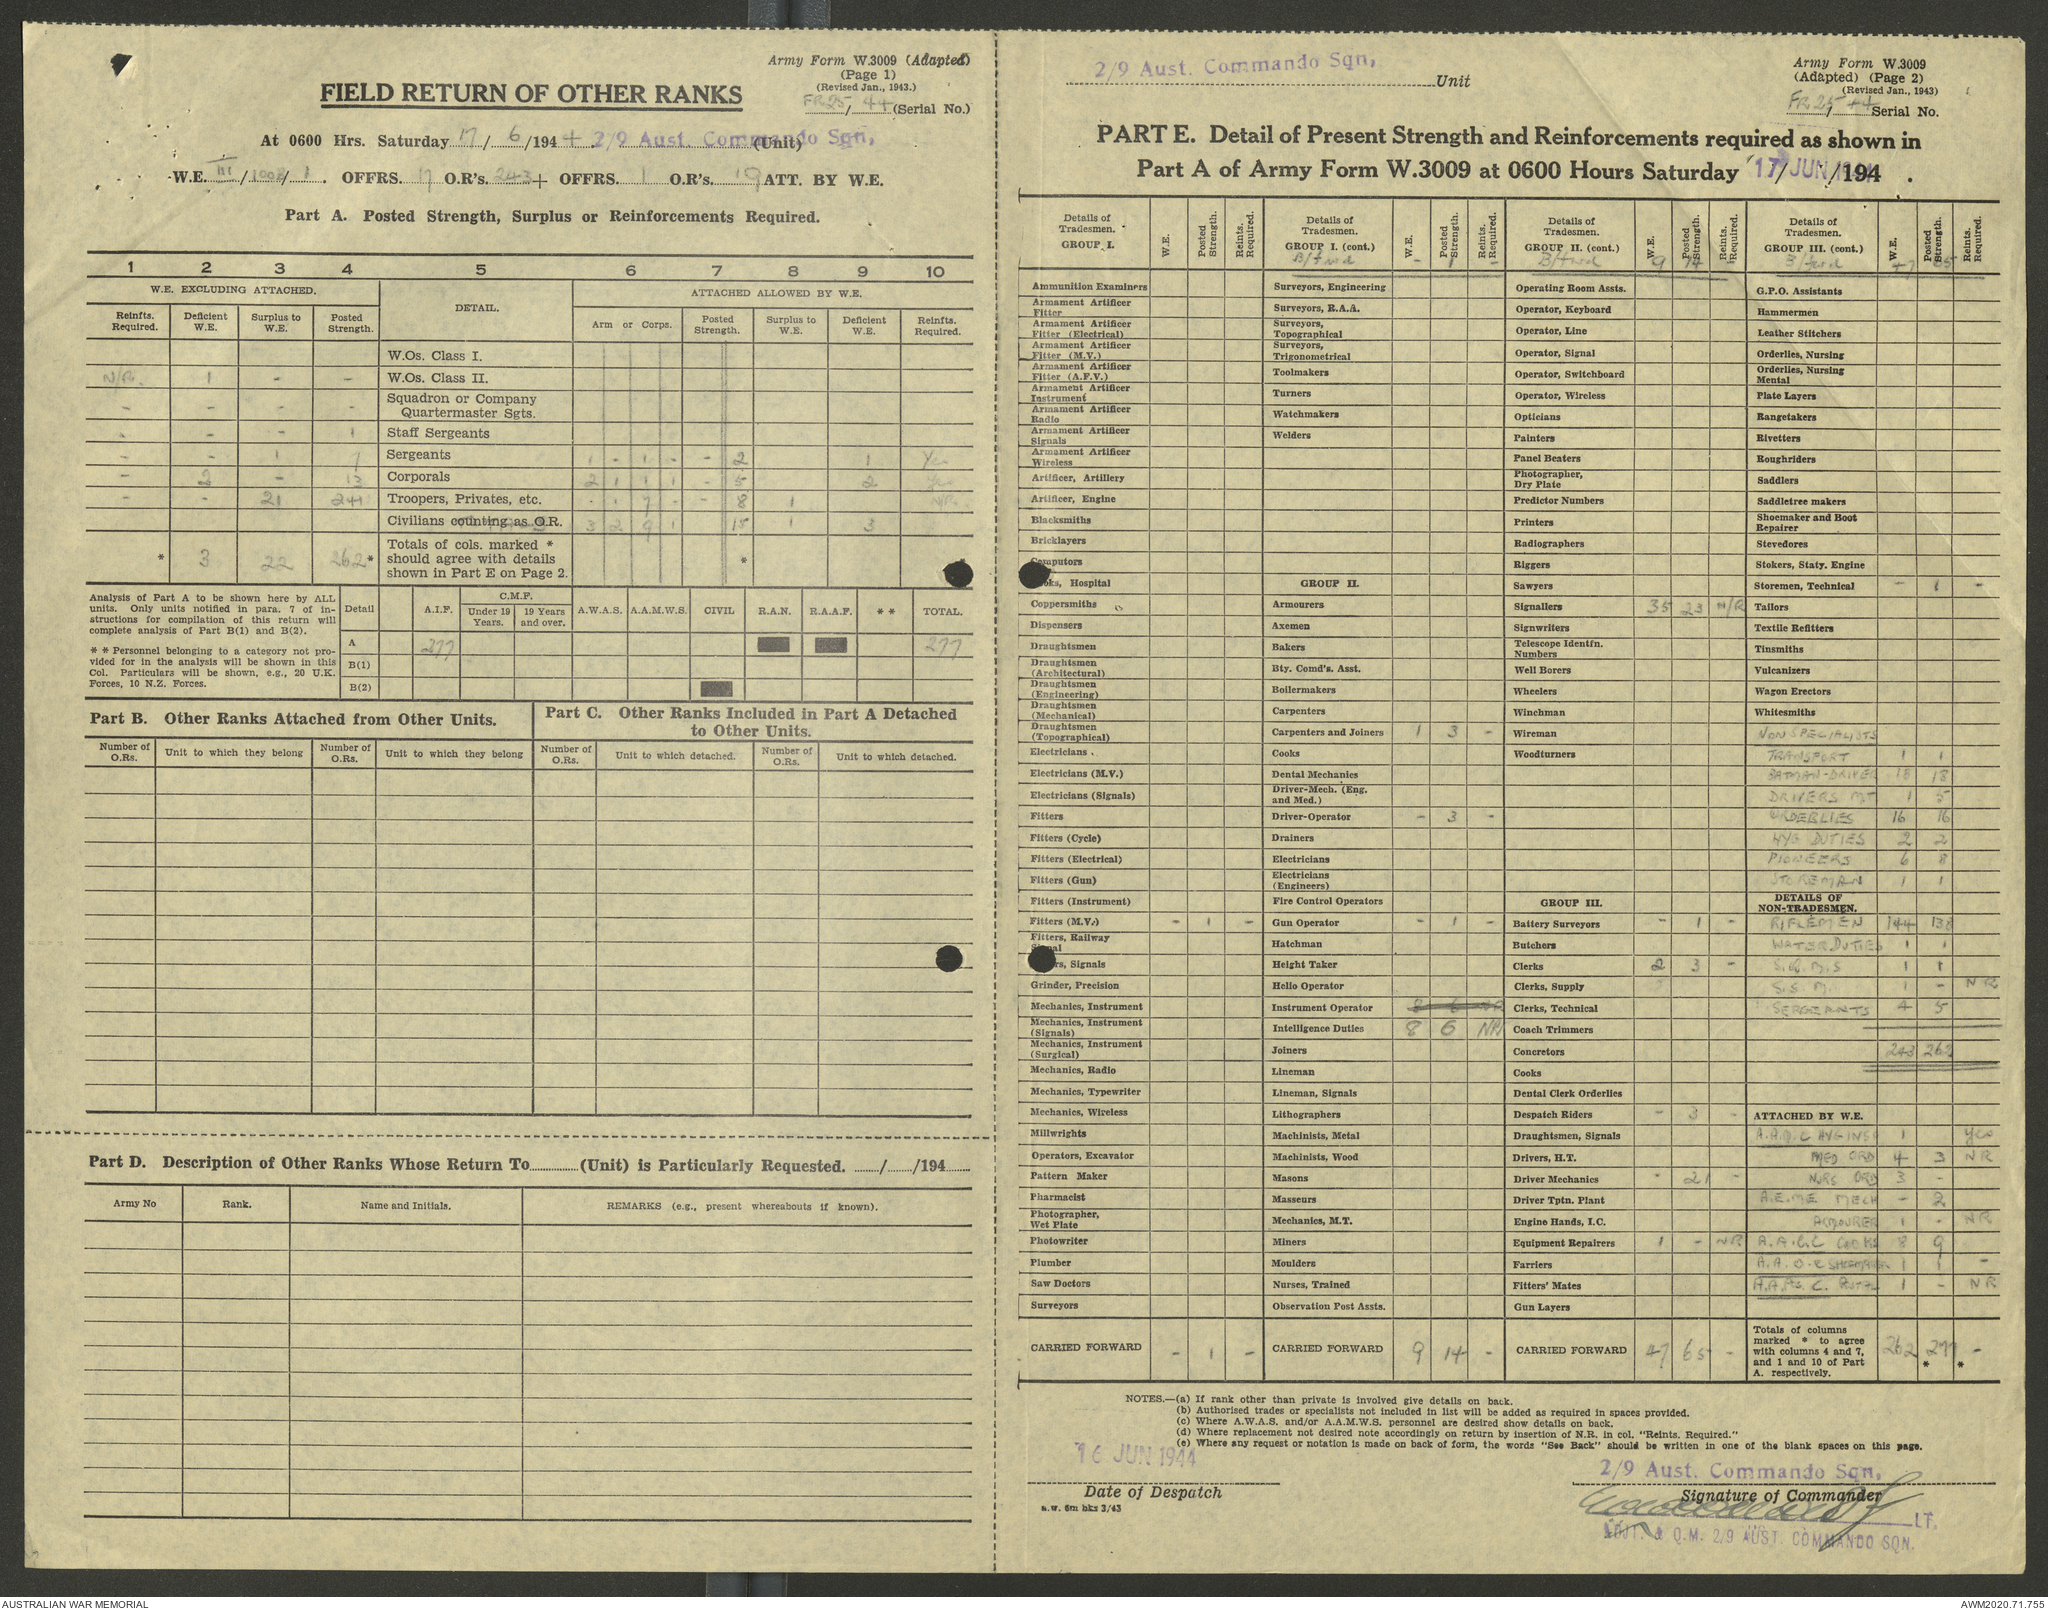 Army Form W.3009 (Adapted)
(Page 1)
(Revised Jan., 1943.)
FR 25/44 (Serial No.)
FIELD RETURN OF OTHER RANKS
At 0600 Hrs. Saturday 17/6/1944 2/9 Aust. Commando Sqn, (Unit)
W.E. III/1008/1. OFFRS. 17 O.R's. 243 + OFFRS. 1 O.R's. 19 ATT. BY W.E.
Part A. Posted Strength, Surplus or Reinforcements Required.
1 2 3 4 5 6 7 8 9 10
W.E. EXCLUDING ATTACHED. DETAIL. ATTACHED ALLOWED BY W.E.
Reinfts. Required. Deficient W.E. Surplus to W.E. Posted Strength. Arm or Corps. Posted Strength. Surplus to W.E. Deficient W.E. Reinfts. Required.
W.Os. Class I.
N/R. 1 - - W.Os. Class II.
- - - - Squadron or Company Quartermaster Sgts.
- - - 1 Staff Sergeants
- - 1 7 Sergeants 1 - 1 - - 2 1 Yes
- 2 - 13 Corporals 2 1 1 1 - 5 2 Yes
- - 21 241 Troopers, Privates, etc. - 1 7 - - 8 1 N/R.
Civilians counting as O.R. 3 2 9 1 15 1 3
* 3 22 262* Totals of cols. marked * should agree with details shown in Part E on Page 2. * *
Analysis of Part A to be shown here by ALL units. Only units notified in para. 7 of instructions for compilation of this return will complete analysis of Part B(1) and B(2).
* * Personnel belonging to a category not provided for in the analysis will be shown in this Col. Particulars will be shown, e.g., 20 U.K. Forces, 10 N.Z. Forces.
Detail A.I.F. C.M.F. Under 19 Years. 19 Years and over. A.W.A.S. A.A.M.W.S. CIVIL R.A.N. R.A.A.F. * * TOTAL.
A 277 277
B(1)
B(2)
Part B. Other Ranks Attached from Other Units.
Part C. Other Ranks Included in Part A Detached to Other Units.
Number of O.Rs. Unit to which they belong Number of O.Rs. Unit to which they belong Number of O.Rs. Unit to which detached. Number of O.Rs. Unit to which detached.
Part D. Description of Other Ranks Whose Return To (Unit) is Particularly Requested. / /194
Army No Rank. Name and Initials. REMARKS (e.g., present whereabouts if known).
2/9 Aust. Commando Sqn, Unit
Army Form W.3009
(Adapted) (Page 2)
(Revised Jan., 1943)
FR 25/44 Serial No.
PART E. Detail of Present Strength and Reinforcements required as shown in
Part A of Army Form W.3009 at 0600 Hours Saturday 17 JUN 1944 / /194 .
Details of Tradesmen. GROUP I. W.E. Posted Strength. Reints. Required.
Ammunition Examiners
Armament Artificer Fitter
Armament Artificer Fitter (Electrical)
Armament Artificer Fitter (M.V.)
Armament Artificer Fitter (A.F.V.)
Armament Artificer Instrument
Armament Artificer Radio
Armament Artificer Signals
Armament Artificer Wireless
Artificer, Artillery
Artificer, Engine
Blacksmiths
Bricklayers
Computors
Cooks, Hospital
Coppersmiths
Dispensers
Draughtsmen
Draughtsmen (Architectural)
Draughtsmen (Engineering)
Draughtsmen (Mechanical)
Draughtsmen (Topographical)
Electricians
Electricians (M.V.)
Electricians (Signals)
Fitters
Fitters (Cycle)
Fitters (Electrical)
Fitters (Gun)
Fitters (Instrument)
Fitters (M.V.) - 1 -
Fitters, Railway Signal
Fitters, Signals
Grinder, Precision
Mechanics, Instrument
Mechanics, Instrument (Signals)
Mechanics, Instrument (Surgical)
Mechanics, Radio
Mechanics, Typewriter
Mechanics, Wireless
Millwrights
Operators, Excavator
Pattern Maker
Pharmacist
Photographer, Wet Plate
Photowriter
Plumber
Saw Doctors
Surveyors
CARRIED FORWARD - 1 -
Details of Tradesmen. GROUP I. (cont.) W.E. Posted Strength. Reints. Required.
B/fwd - 1 -
Surveyors, Engineering
Surveyors, R.A.A.
Surveyors, Topographical
Surveyors, Trigonometrical
Toolmakers
Turners
Watchmakers
Welders
GROUP II.
Armourers
Axemen
Bakers
Bty. Comd's. Asst.
Boilermakers
Carpenters
Carpenters and Joiners 1 3 -
Cooks
Dental Mechanics
Driver-Mech. (Eng. and Med.)
Driver-Operator - 3 -
Drainers
Electricians
Electricians (Engineers)
Fire Control Operators
Gun Operator - 1 -
Hatchman
Height Taker
Helio Operator
Instrument Operator 8 6 NR
Intelligence Duties 8 6 NR
Joiners
Lineman
Lineman, Signals
Lithographers
Machinists, Metal
Machinists, Wood
Masons
Masseurs
Mechanics, M.T.
Miners
Moulders
Nurses, Trained
Observation Post Assts.
CARRIED FORWARD 9 14 -
Details of Tradesmen. GROUP II. (cont.) W.E. Posted Strength. Reints. Required.
B/fwd 9 14 -
Operating Room Assts.
Operator, Keyboard
Operator, Line
Operator, Signal
Operator, Switchboard
Operator, Wireless
Opticians
Painters
Panel Beaters
Photographer, Dry Plate
Predictor Numbers
Printers
Radiographers
Riggers
Sawyers
Signallers 35 23 N/R
Signwriters
Telescope Identfn. Numbers
Well Borers
Wheelers
Winchman
Wireman
Woodturners
GROUP III.
Battery Surveyors - 1 -
Butchers
Clerks 2 3 -
Clerks, Supply
Clerks, Technical
Coach Trimmers
Concretors
Cooks
Dental Clerk Orderlies
Despatch Riders - 3 -
Draughtsmen, Signals
Drivers, H.T.
Driver Mechanics - 21 -
Driver Tptn. Plant
Engine Hands, I.C.
Equipment Repairers 1 - NR
Farriers
Fitters' Mates
Gun Layers
CARRIED FORWARD 47 65 -
Details of Tradesmen. GROUP III. (cont.) W.E. Posted Strength. Reints. Required.
B/fwd 47 65 -
G.P.O. Assistants
Hammermen
Leather Stitchers
Orderlies, Nursing
Orderlies, Nursing Mental
Plate Layers
Rangetakers
Rivetters
Roughriders
Saddlers
Saddletree makers
Shoemaker and Boot Repairer
Stevedores
Stokers, Staty. Engine
Storemen, Technical - 1 -
Tailors
Textile Refitters
Tinsmiths
Vulcanizers
Wagon Erectors
Whitesmiths
NON SPECIALISTS
TRANSPORT 1 1
BATMAN-DRIVER 18 18
DRIVERS MT 1 5
ORDERLIES 16 16
HYG DUTIES 2 2
PIONEERS 6 8
STOREMAN 1 1
DETAILS OF NON-TRADESMEN.
RIFLEMEN 144 138
WATER DUTIES 1 1
S.Q.M.S 1 1
S.S.M. 1 - NR
SERGEANTS 4 5
243 262
ATTACHED BY W.E.
A.A.M.C HYGIENE 1 Yes
MED ORD 4 3 NR
NURS ORD 3 -
A.E.M.E. MECH - 2
ARMOURER 1 - NR
A.A.C.C COOKS 8 9
A.A.O.C SHOEMAKER 1 1 -
A.A.P.S.C. 1 - NR
Totals of columns marked * to agree with columns 4 and 7, and 1 and 10 of Part A. respectively. 262 277* -*
NOTES.—(a) If rank other than private is involved give details on back.
(b) Authorised trades or specialists not included in list will be added as required in spaces provided.
(c) Where A.W.A.S. and/or A.A.M.W.S. personnel are desired show details on back.
(d) Where replacement not desired note accordingly on return by insertion of N.R. in col. "Reints. Required."
(e) Where any request or notation is made on back of form, the words "See Back" should be written in one of the blank spaces on this page.
16 JUN 1944
Date of Despatch
a.w. 6m bks 3/43
2/9 Aust. Commando Sqn,
Signature of Commander
LT.
ADJT. & Q.M. 2/9 AUST. COMMANDO SQN.
AUSTRALIAN WAR MEMORIAL
AWM2020.71.755